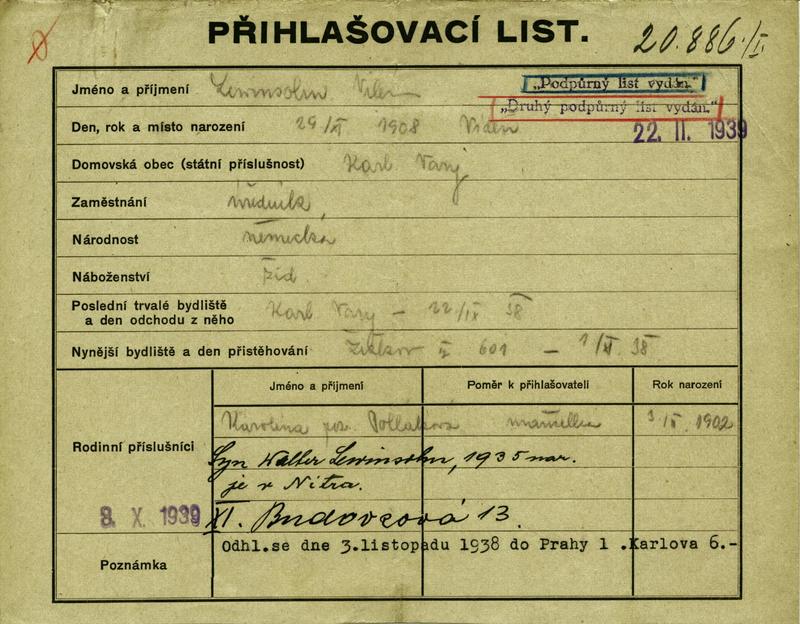 PŘIHLAŠOVACÍ LIST.
20.886/I.
Jméno a příjmení Lewinsohn Vilém
„Podpůrný list vydán.“
„Druhý podpůrný list vydán.“
Den, rok a místo narození 29/XI 1908 Vídeň
22. II. 1939
Domovská obec (státní příslušnost) Karl Vary
Zaměstnání úředník
Národnost německá
Náboženství žid.
Poslední trvalé bydliště
a den odchodu z něho Karl Vary – 22/IX 38
Nynější bydliště a den přistěhování Žižkov 601 – 38
Jméno a příjmení Poměr k přihlašovateli Rok narození
Rodinní příslušníci
Karolina roz. Pollaková manželka 1902
Syn Walter Lewinsohn, 1935 nar.
je v Nitra.
3. X. 1939 XI. Budovcová 13.
Poznámka
Odhl.se dne 3.listopadu 1938 do Prahy 1 .Karlova 6.-